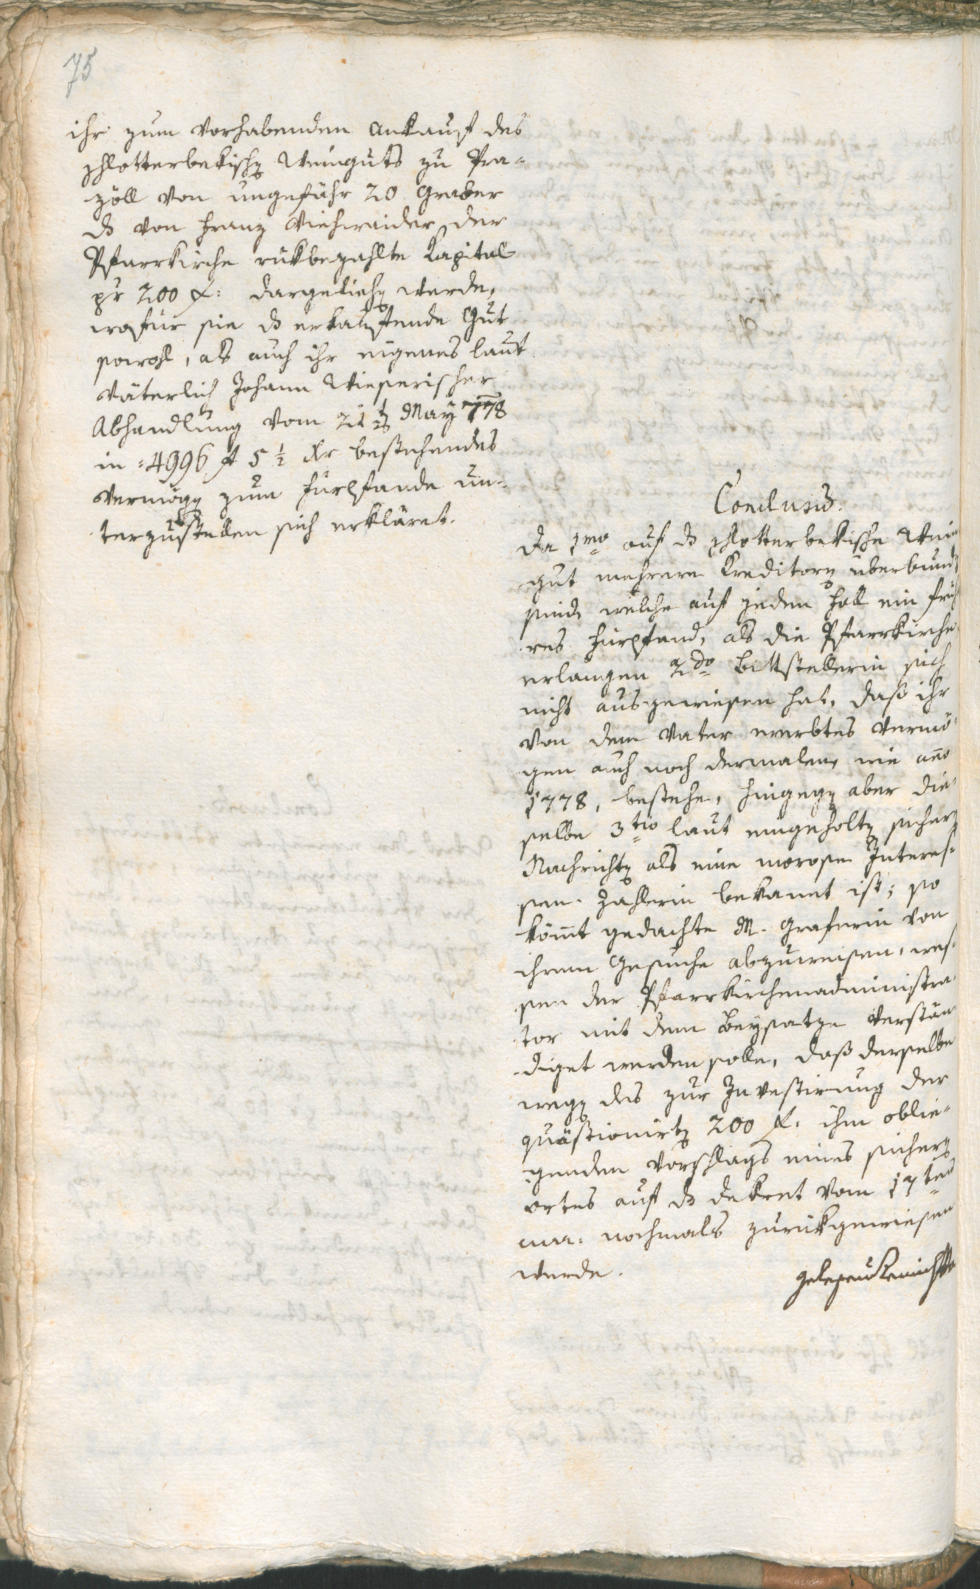 75
ihr zum vorhabenden Ankauf des
Schlotterbekischen Weinguts zu Pra-
zöll von ungefähr 20 Graber
ds von Franz Viehweider der
Pfarrkirche rükbezahlte Kapital
pr 200 f: dargeliehen werde,
wofür sie ds erkaufende Gut
sowohl, als auch ihr eigenes laut
väterlich Johann Wieserischer
Abhandlung vom May 778
in 4996 f 5 ½ xr bestehendes
Vermögen zum Fürpfande un-
terzustellen sich erkläret.
Conclusum.
Da 1mo auf ds Schlotterbekische Wein
gut mehrere Kreditoren überbunden
sind, welche auf jeden Fall ein früh
res Fürpfand, als die Pfarrkirche
erlangen 2do Bittstellerin sich
nicht ausgewiesen hat, daß ihr
von dem Vater ererbtes Vermö-
gen auch noch dermalen, wie ano
1778, bestehe, hingegen aber die-
selbe 3tio laut eingeholten sichern
Nachrichten als eine morose Interes-
sen-Zahlerin bekannt ist; so
kömmt gedachte M. Graferin von
ihrem Gesuche abzuweisen, wes-
sen der Pfarrkirchenadministra-
tor mit dem Beysatze verstän-
diget werden solle, daß derselbe
wegen des zur Investirung der
quästionirten 200 f. ihm oblie-
genden Vorschlags eines sichern
Ortes auf ds Dekret vom 17ten
curr. nochmals zurükgewiesen
werde.